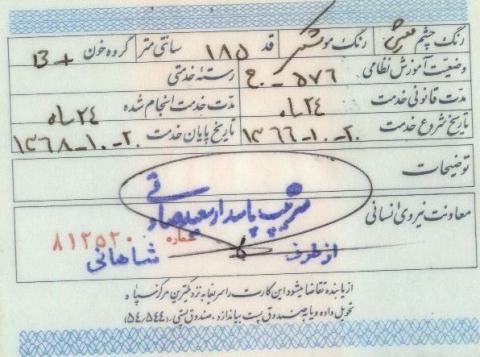 رنگ چشم میشی رنگ مو مشکی قد ۱۸۵ سانتی متر گروه خون B+
وضعیت آموزش نظامی ۵۷۶ - ج رسته خدمتی
مدت قانونی خدمت ۲۴ ماه مدت خدمت انجام شده ۲۴ ماه
تاریخ شروع خدمت ۱۳۶۶-۱۰-۲۰ تاریخ پایان خدمت ۱۳۶۸-۱۰-۲۰
توضیحات
معاونت نیروی انسانی
سرتیپ پاسدار سعید صادقی
شماره ۸۱۲۵۲۰۰
از طرف شاهانی
از یابنده تقاضا میشود این کارت را سریعا به نزدیکترین مرکز سپاه
تحویل داده و یا به صندوق پست بیاندازد. صندوق پستی (۵۴/۵۴۴)